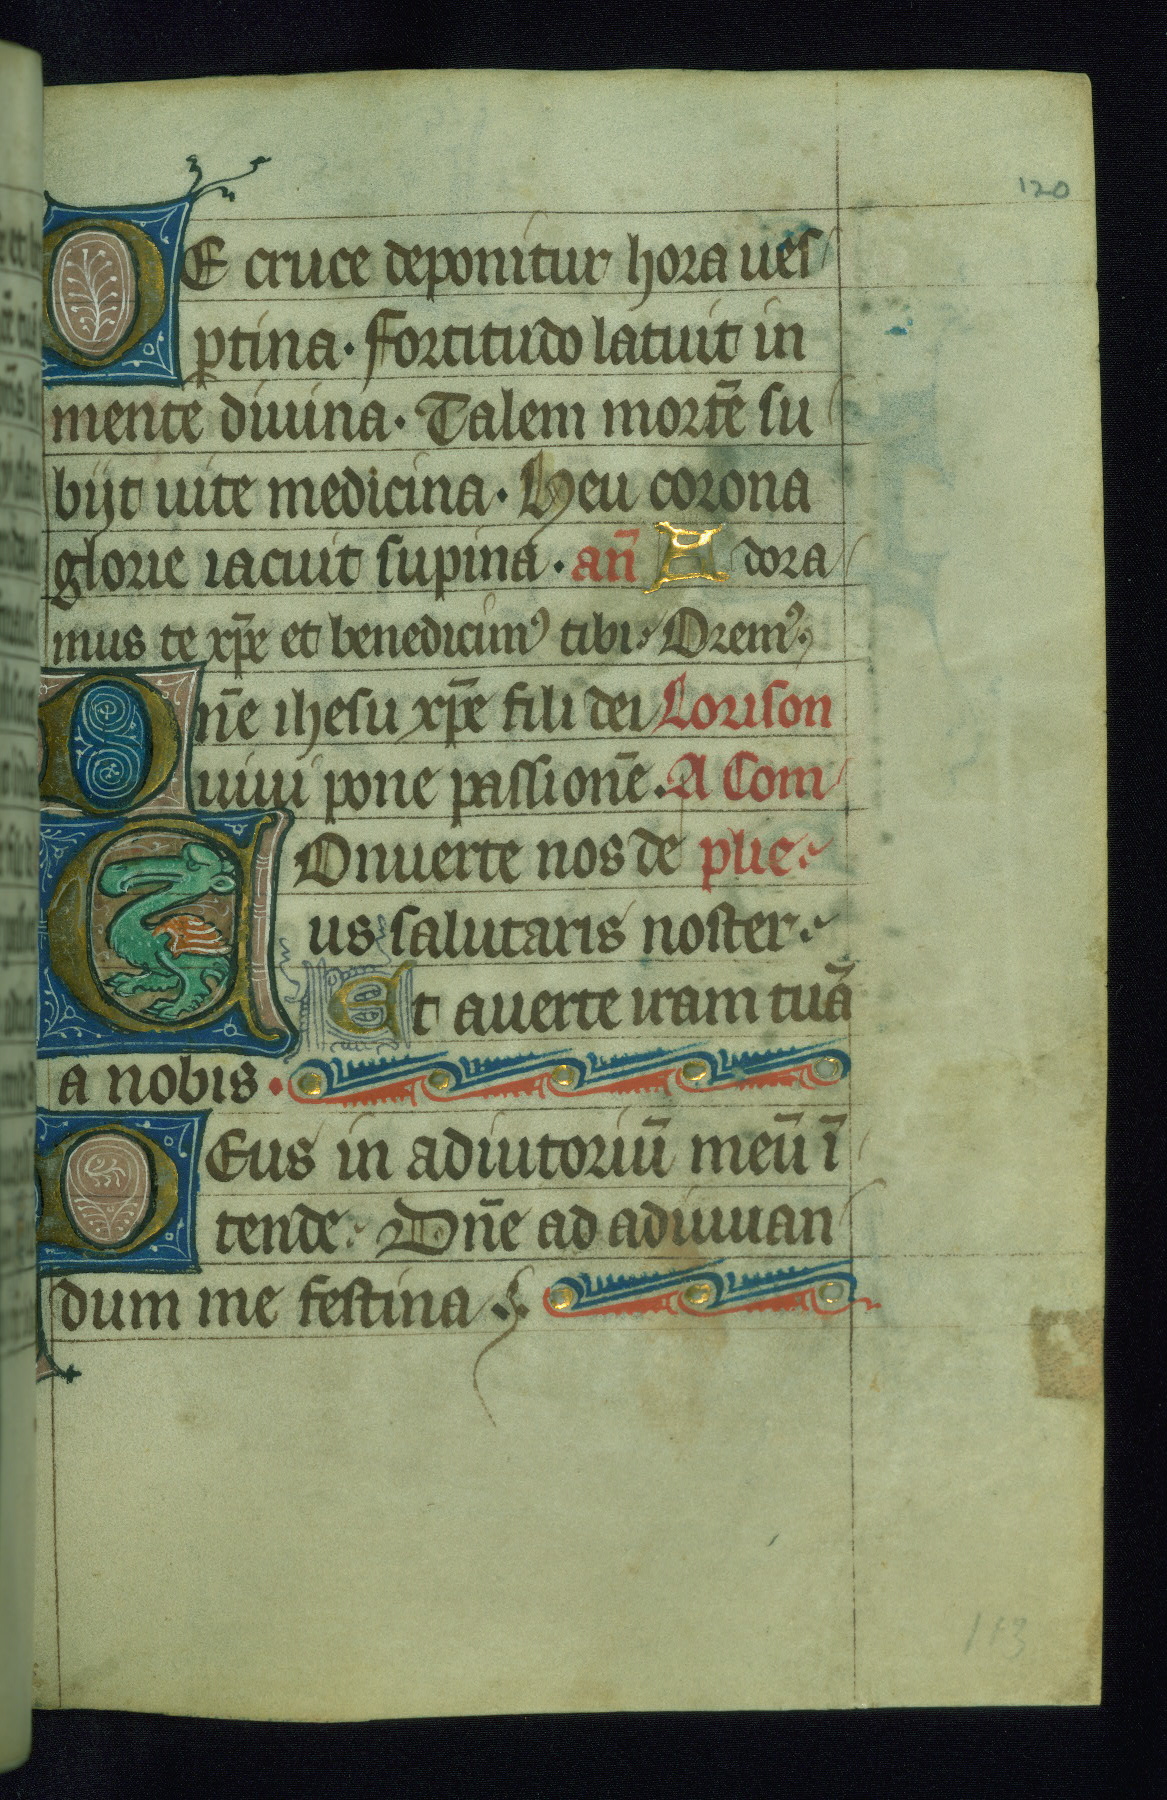 120
DE cruce deponitur hora ves
ptina. Fortitudo latuit in
mente diuina. Talem mortē su
bijt uite medicina. Heu corona
glorie iacuit supina. an̄ Adora
mus te xp̄e et benedicimꝰ tibi. Oremꝰ
Dn̄e ihesu xp̄e fili dei Lorison
uiui pone passionē. A Com
COnuerte nos de plie.
us salutaris noster.
Et auerte iram tuā
a nobis.
DEus in adiutoriū meū ī
tende. Dn̄e ad adiuuan
dum me festina.
113